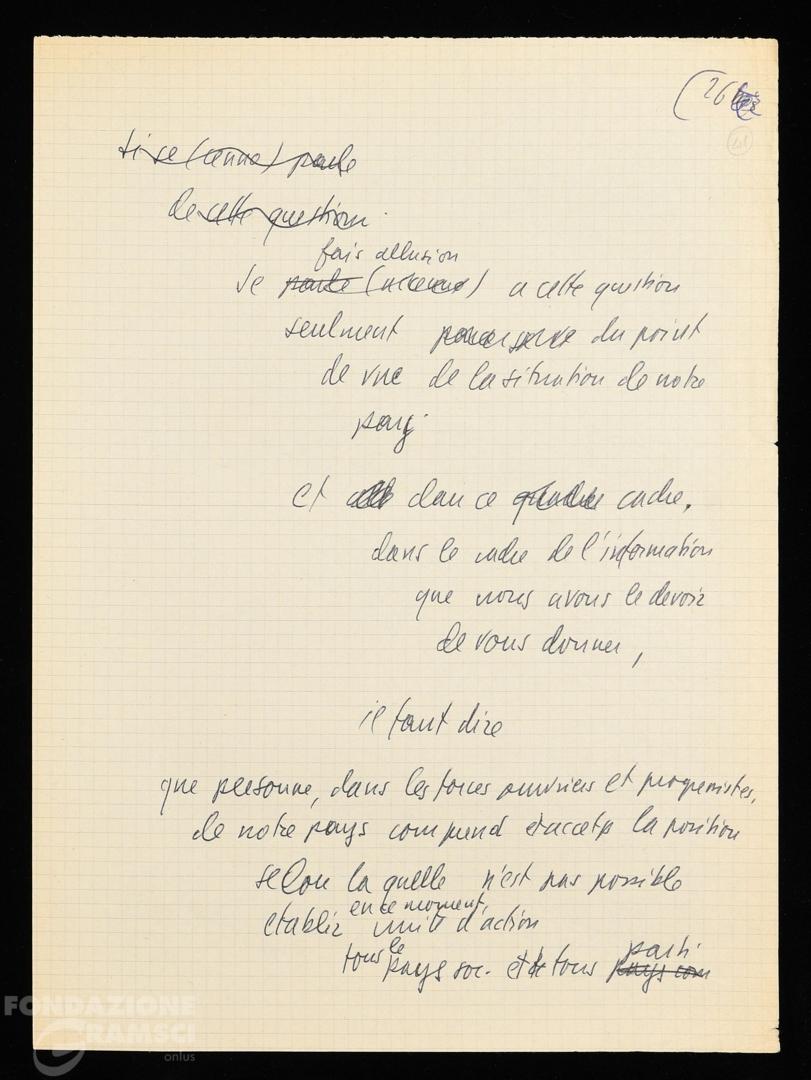 (26
41
si se (cenno) parle
de cette question.
fais allusion
Je parle (accenno) a cette question
seulment du point
de vue de la situation de notre
pays.
et dan ce cadre,
dans le cadre de l'information
que nous avons le devoir
de vous donner,
il faut dire
que personne, dans les forces ouvrieres et progressistes,
de notre pays comprend et accetp la position
selon la quelle n'est pas possible
en ce moment,
etablir unité d'action
tous le parti
pays soc. et de tous pays com
FONDAZIONE
GRAMSCI
onlus